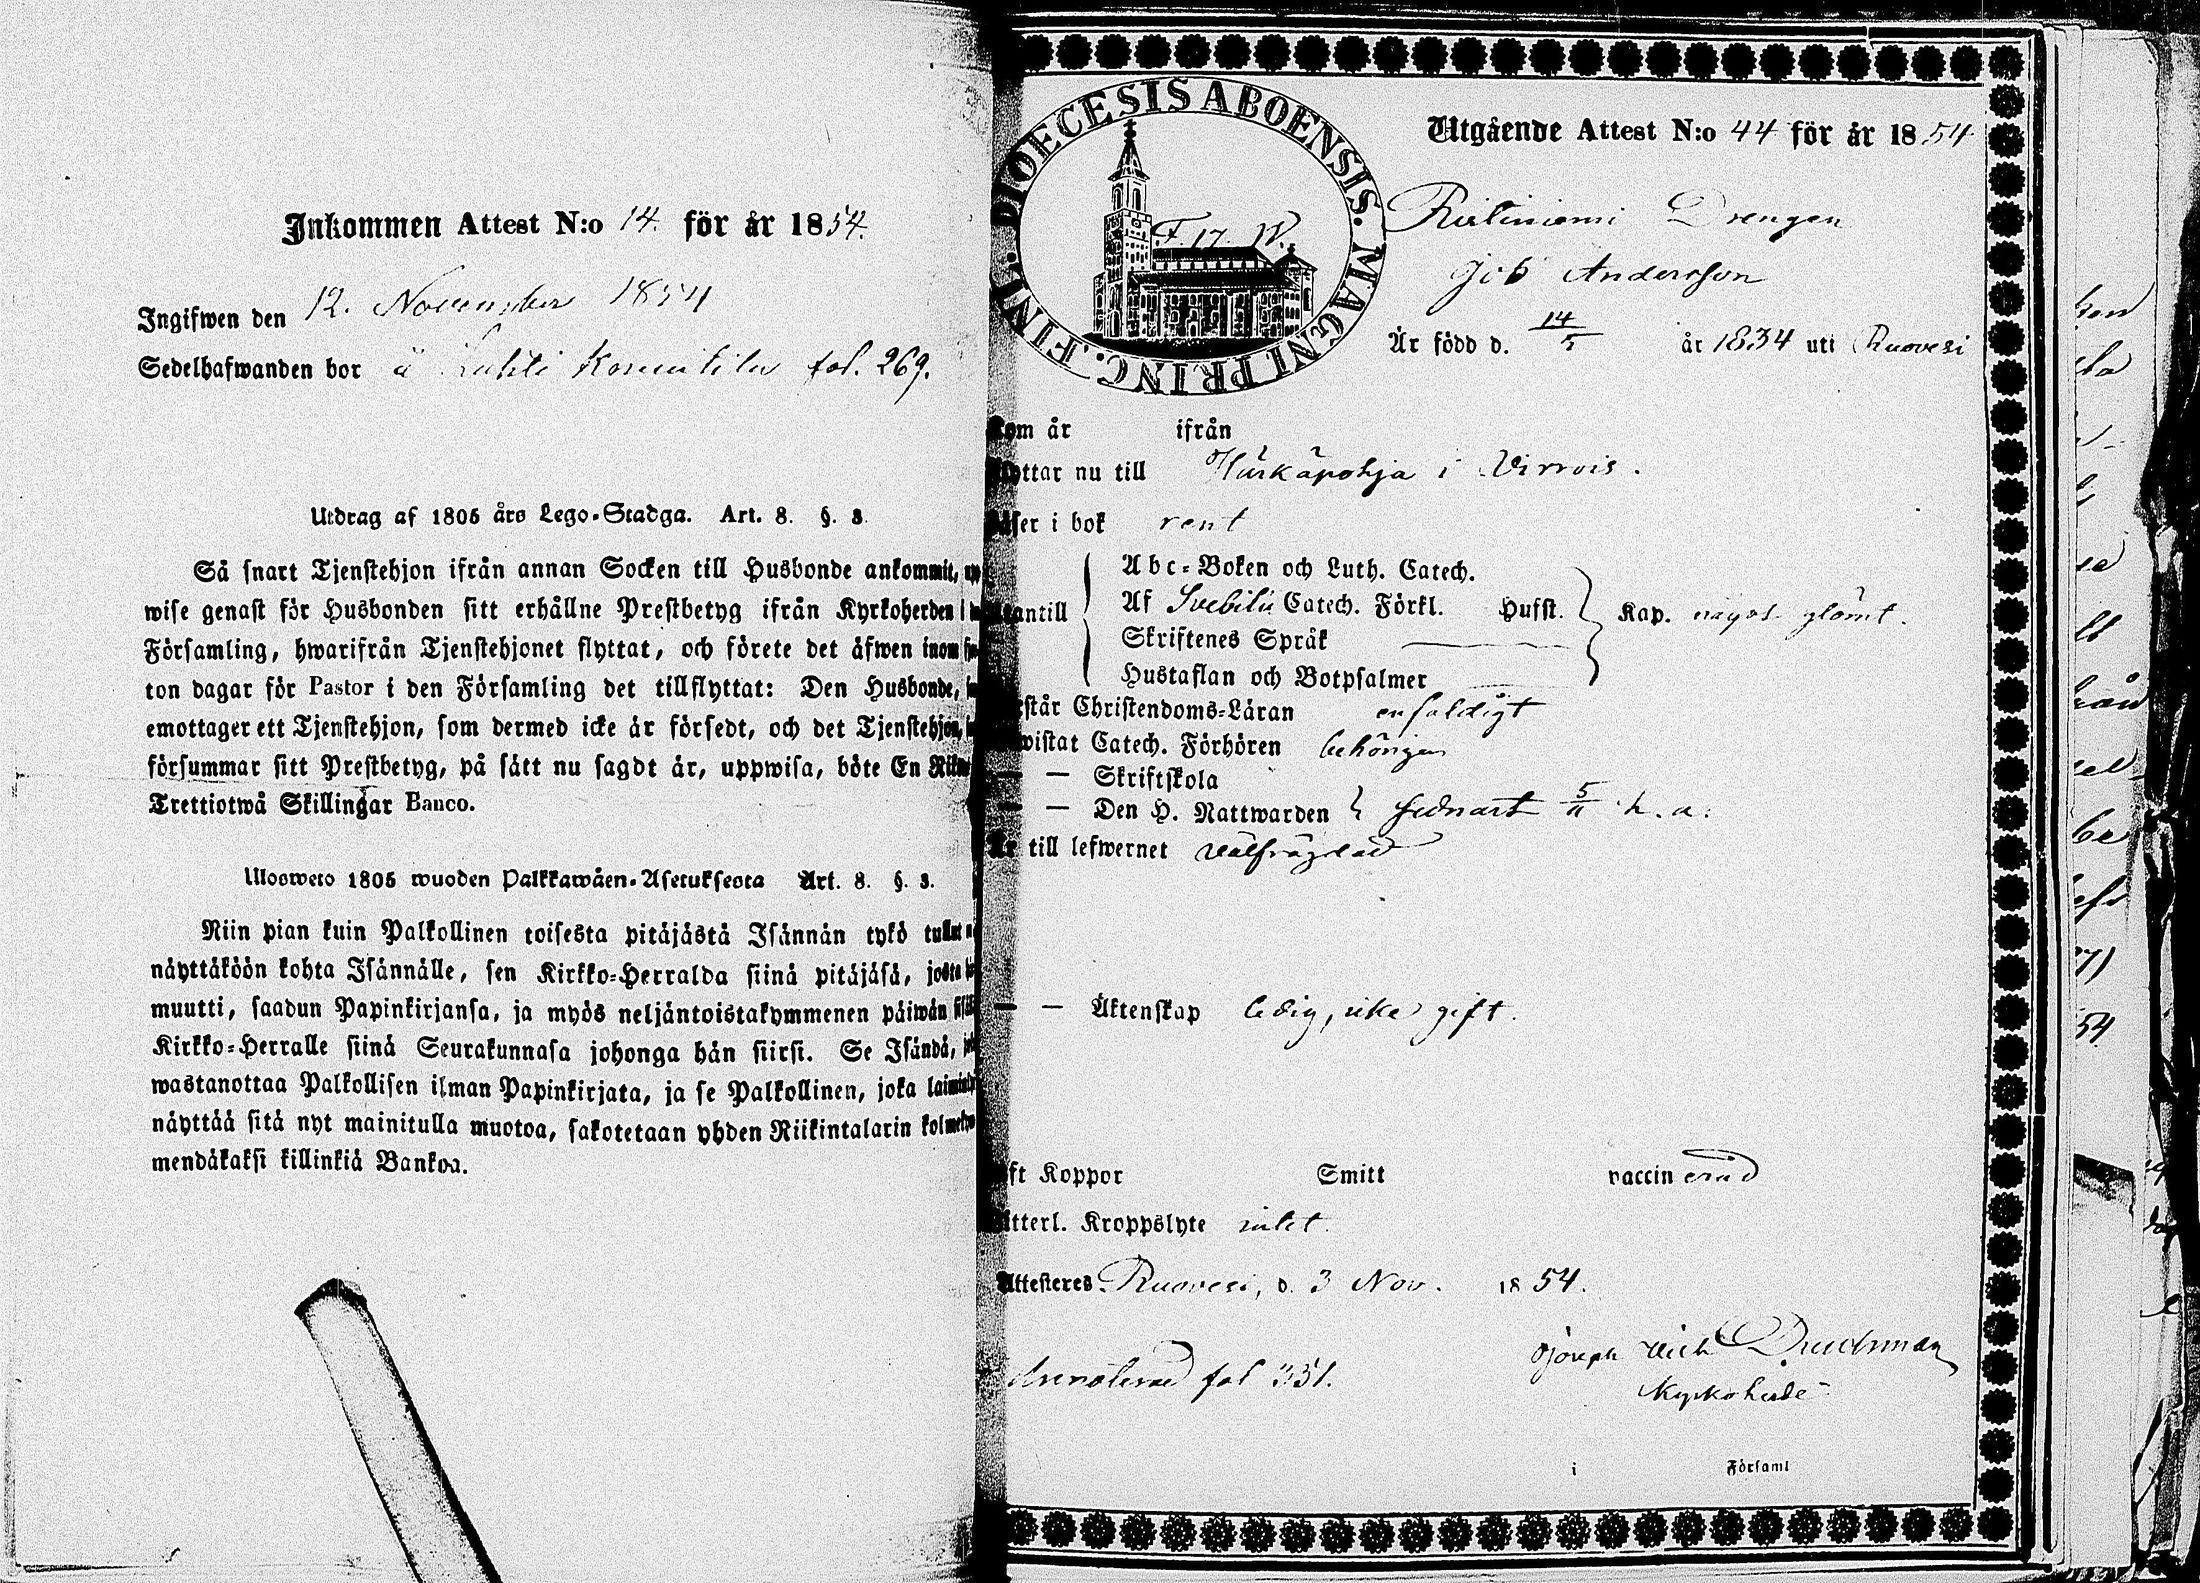 Inkommen Attest N:o 14. för år 1854.
Ingifwen den 12. November 1854
Sedelhafwanden bor å Lahti fol. 269.
Utdrag af 1805 års Lego-Stadga. Art. 8. §. 3.
Så snart Tjenstehjon ifrån annan Socken till Husbonde ankommit,
wise genast för Husbonden sitt erhållne Prestbetyg ifrån Kyrkoherden i
Församling, hwarifrån Tjenstehjonet flyttat, och förete det äfwen inom
ton dagar för Pastor i den Församling det tillflyttat: Den Husbonde,
emottager ett Tjenstehjon, som dermed icke är försedt, och det Tjenstehjon,
försummar sitt Prestbetyg, på sätt nu sagdt är, uppwisa, böte En
Trettiotwå Skillingar Banco.
Ulosweto 1805 wuoden Palkkawäen-Asetuksesta Art. 8. §. 3.
Niin pian kuin Palkollinen toisesta pitäjästä Isännän tykö tullut
näyttäköön kohta Isännälle, sen Kirkko-Herralda siinä pitäjäsä, josta
muutti, saadun Papinkirjansa, ja myös neljäntoistakymmenen päiwän
Kirkko-Herralle siinä Seurakunnasa johonga hän siirsi. Se Isändä,
wastanottaa Palkollisen ilman Papinkirjata, ja se Palkollinen, joka
näyttää sitä nyt mainitulla muotoa, sakotetaan yhden Riikintalarin
mendäkaksi killinkiä Bankoa.
DIOECESIS ABOENSIS. MAGNI PRINC. FINL.
F. 17. W.
Utgående Attest N:o 44 för år 1854
Ristiniemi Drengen
Job Andersson
Är född d. 14/5 år 1834 uti Ruovesi
Kom år ifrån
Flyttar nu till Härkäpohja i Virrois.
Läser i bok rent
Utantill
Abc-Boken och Luth. Catech.
Af Svebilii Catech. Förkl. Hufst. Kap. något glömt.
Skriftenes Språk
Hustaflan och Botpsalmer
Förstår Christendoms-Läran enfaldigt
Bewistat Catech. Förhören behörigen
— — Skriftskola
— — Den H. Nattwarden sednast 5/11 h. a.
Är till lefwernet välfräjdad
— — Äktenskap ledig, icke gift.
Haft Koppor Smitt vaccinerad
Ytterl. Kroppslyte intet.
Attesteras Ruovesi, d. 3 Nov. 1854.
Annoterad fol 351.
Kyrkoherde
i Församl